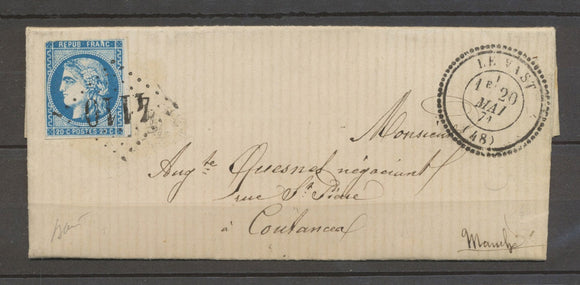 REPUB. FRANC.
20 c POSTES 20 c
LE VAST
1E 20
MAI
71
(48)
Monsieur
Augte Quesnel négociant
rue St Pierre
à Coutances
Manche